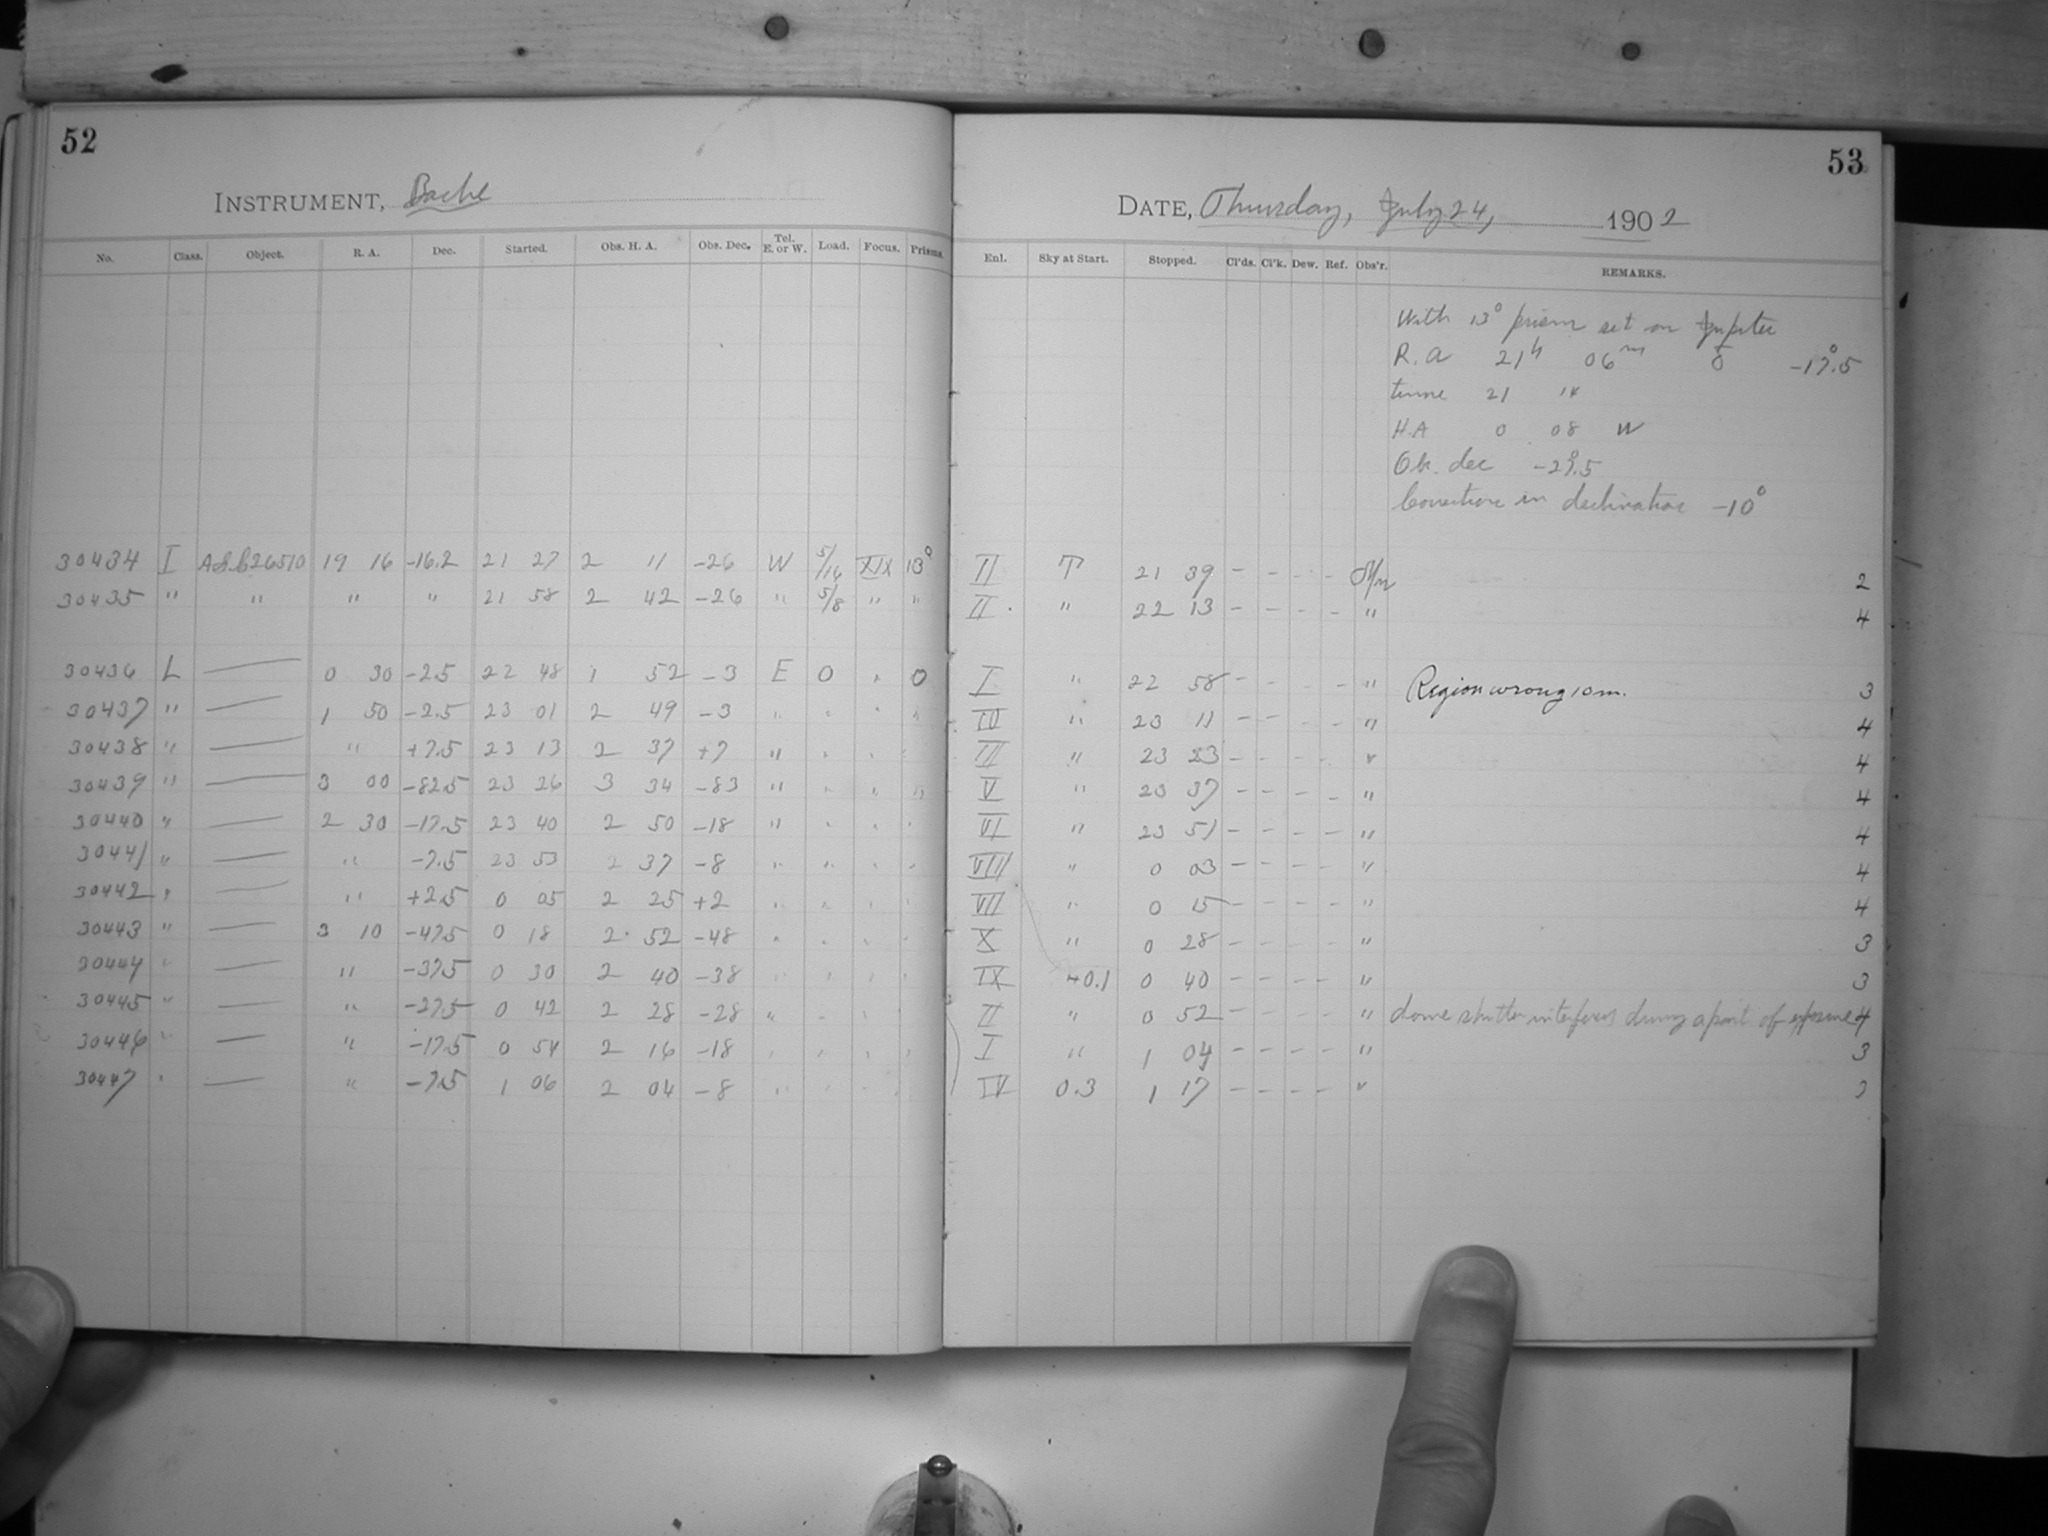 52
INSTRUMENT, Bache
No. Class. Object. R. A. Dec. Started. Obs. H. A. Obs. Dec. Tel. E. or W. Load. Focus. Prisms.
30434 I A.G.C.26510 19 16 -16.2 21 27 2 11 -26 W 5/16 XIX 13°
30435 " " " " 21 58 2 42 -26 " 5/8 " "
30436 L — 0 30 -2.5 22 48 1 52 -3 E 0 " 0
30437 " — 1 50 -2.5 23 01 2 49 -3 " " " "
30438 " — " +7.5 23 13 2 37 +7 " " " "
30439 " — 3 00 -82.5 23 26 3 34 -83 " " " "
30440 " — 2 30 -17.5 23 40 2 50 -18 " " " "
30441 " — " -7.5 23 53 2 37 -8 " " " "
30442 " — " +2.5 0 05 2 25 +2 " " " "
30443 " — 3 10 -47.5 0 18 2 52 -48 " " " "
30444 " — " -37.5 0 30 2 40 -38 " " " "
30445 " — " -27.5 0 42 2 28 -28 " " " "
30446 " — " -17.5 0 54 2 16 -18 " " " "
30447 " — " -7.5 1 06 2 04 -8 " " " "
53
DATE, Thursday, July 24, 1902
Enl. Sky at Start. Stopped. Cl'ds. Cl'k. Dew. Ref. Obs'r. REMARKS.
With 13° prism set on Jupiter
R.A 21h 06m δ -17°.5
time 21 14
H.A 0 08 W
Ob. dec -27°.5
Correction in declination -10°
II T 21 39 - - - - 2
II " 22 13 - - - - " 4
I " 22 58 - - - - " Region wrong 10 m. 3
" 23 11 - - - - " 4
III " 23 23 - - - - " 4
V " 23 37 - - - - " 4
VI " 23 51 - - - - " 4
VIII " 0 03 - - - - " 4
VII " 0 15 - - - - " 4
X " 0 28 - - - - " 3
IX 0.1 0 40 - - - - " 3
II " 0 52 - - - - " dome shutter interferes during a part of exposure 4
I " 1 04 - - - - " 3
IV 0.3 1 17 - - - - "